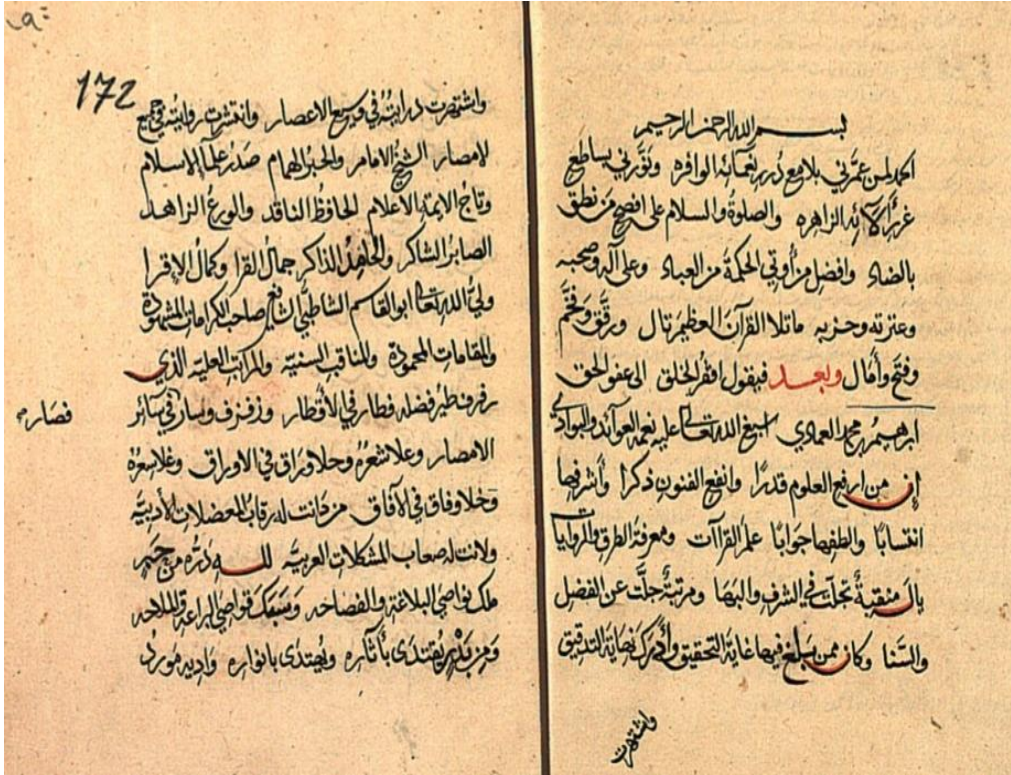 بسم الله الرحمن الرحيم
الحمد لمن عمّرني بلامع دُرر نعمائه الوافره ونوّرني بساطع
غرر آلائه الزاهره والصلوة والسلام على افصح من نطق
بالضاد وافضل من أُوتي الحكمة من العباد وعلى آله وصحبه
وعترته وحزبه ما تلا القرآن العظيم تال ورقّق وفخّم
وفتح وأمال وبعد فيقول افقر الخلق الى عفو الحق
ابرهيم بن محمد العمادي اسبغ الله تعالى عليه نعمه العوائد والبوادي
إن من ارفع العلوم قدرًا وانفع الفنون ذكرا وأشرفها
انتسابًا والطفها جوابًا علم القراآت ومعرفة الطرق والروايات
يال منقبةٌ تجلّت في الشرف والبها ومرتبةٌ جلّت عن الفضل
والسّنا وكان ممن بلغ فيها غاية التحقيق وأدرك نهاية التدقيق
واشتهرت
172
واشتهرت درايته في وسع الاعصار وانتشرت روايته في جميع
الامصار الشيخ الامام والحبر الهمام صدر علماء الاسلام
وتاج الايمة الاعلام الحافظ الناقد والورع الزاهد
الصابر الشاكر والجاهد الذاكر جمال القرا وكمال الاقرا
وليّ الله تعالى ابو القاسم الشاطبي صاحب الكرامات المشهودة
والمقامات المحمودة والمناقب السنيّه والمراتب العليه الذي
رفرف طير فضله فطار في الأقطار وزفزف وسار في سائر
فصار
الامصار وعلا شعره وحلا وراق في الاوراق وغلا سعره
وخلا وفاق في الآفاق من دانت له رقاب المعضلات الأدبيّه
ولانت له صعاب المشكلات العربيّه لله درّه من حبر
ملك نواصي البلاغة والفصاحه وسبك قواصي البراعة والملاحه
ومن بدر يُقتدى بآثاره ويُهتدى بانواره واديب مورد